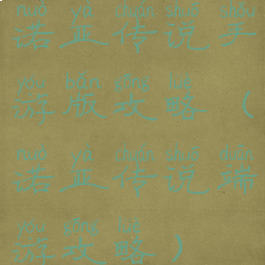 nuò yà chuán shuō shǒu
诺亚传说手
yóu bǎn gōng lüè
游版攻略（
nuò yà chuán shuō duān
诺亚传说端
yóu gōng lüè
游攻略）